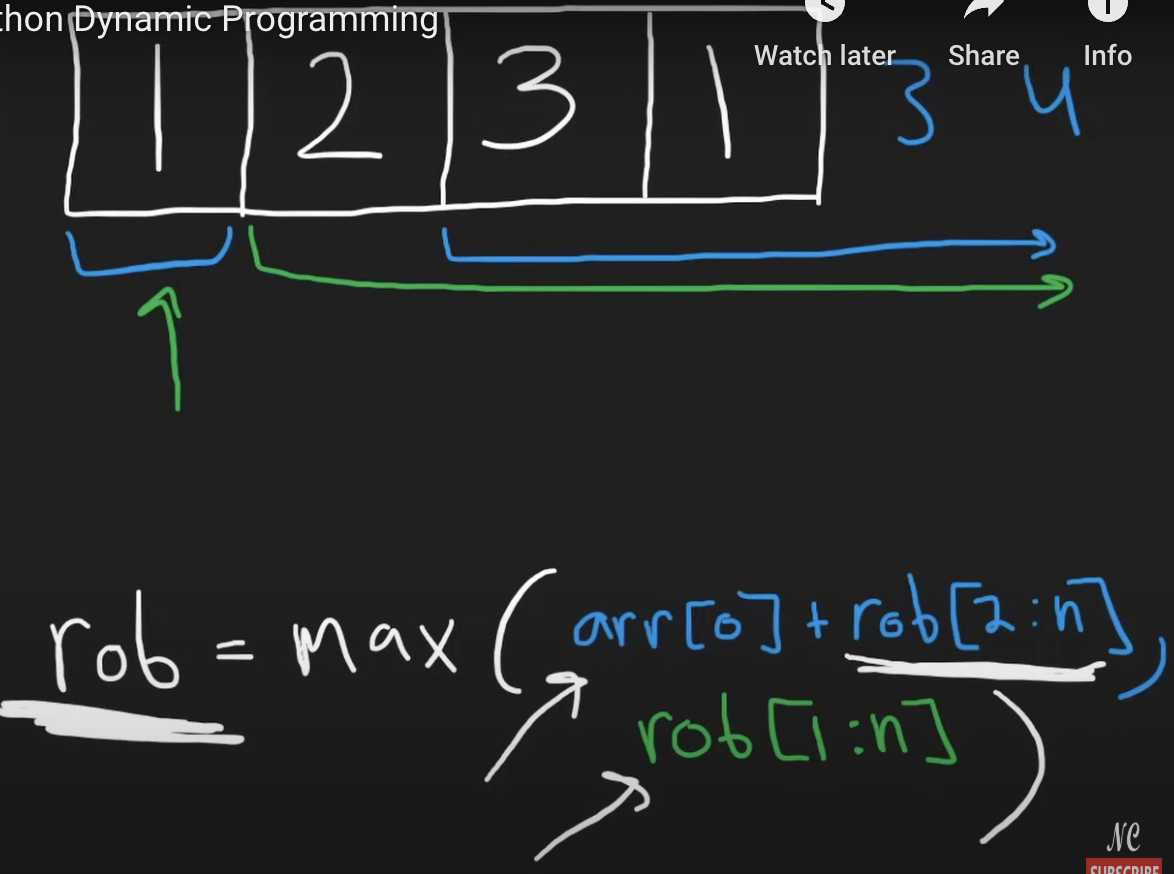 thon Dynamic Programming
Watch later Share Info
1 2 3 1 3 4
rob = max ( arr[0] + rob[2:n] ,
rob[1:n] )
NC
SUBSCRIBE